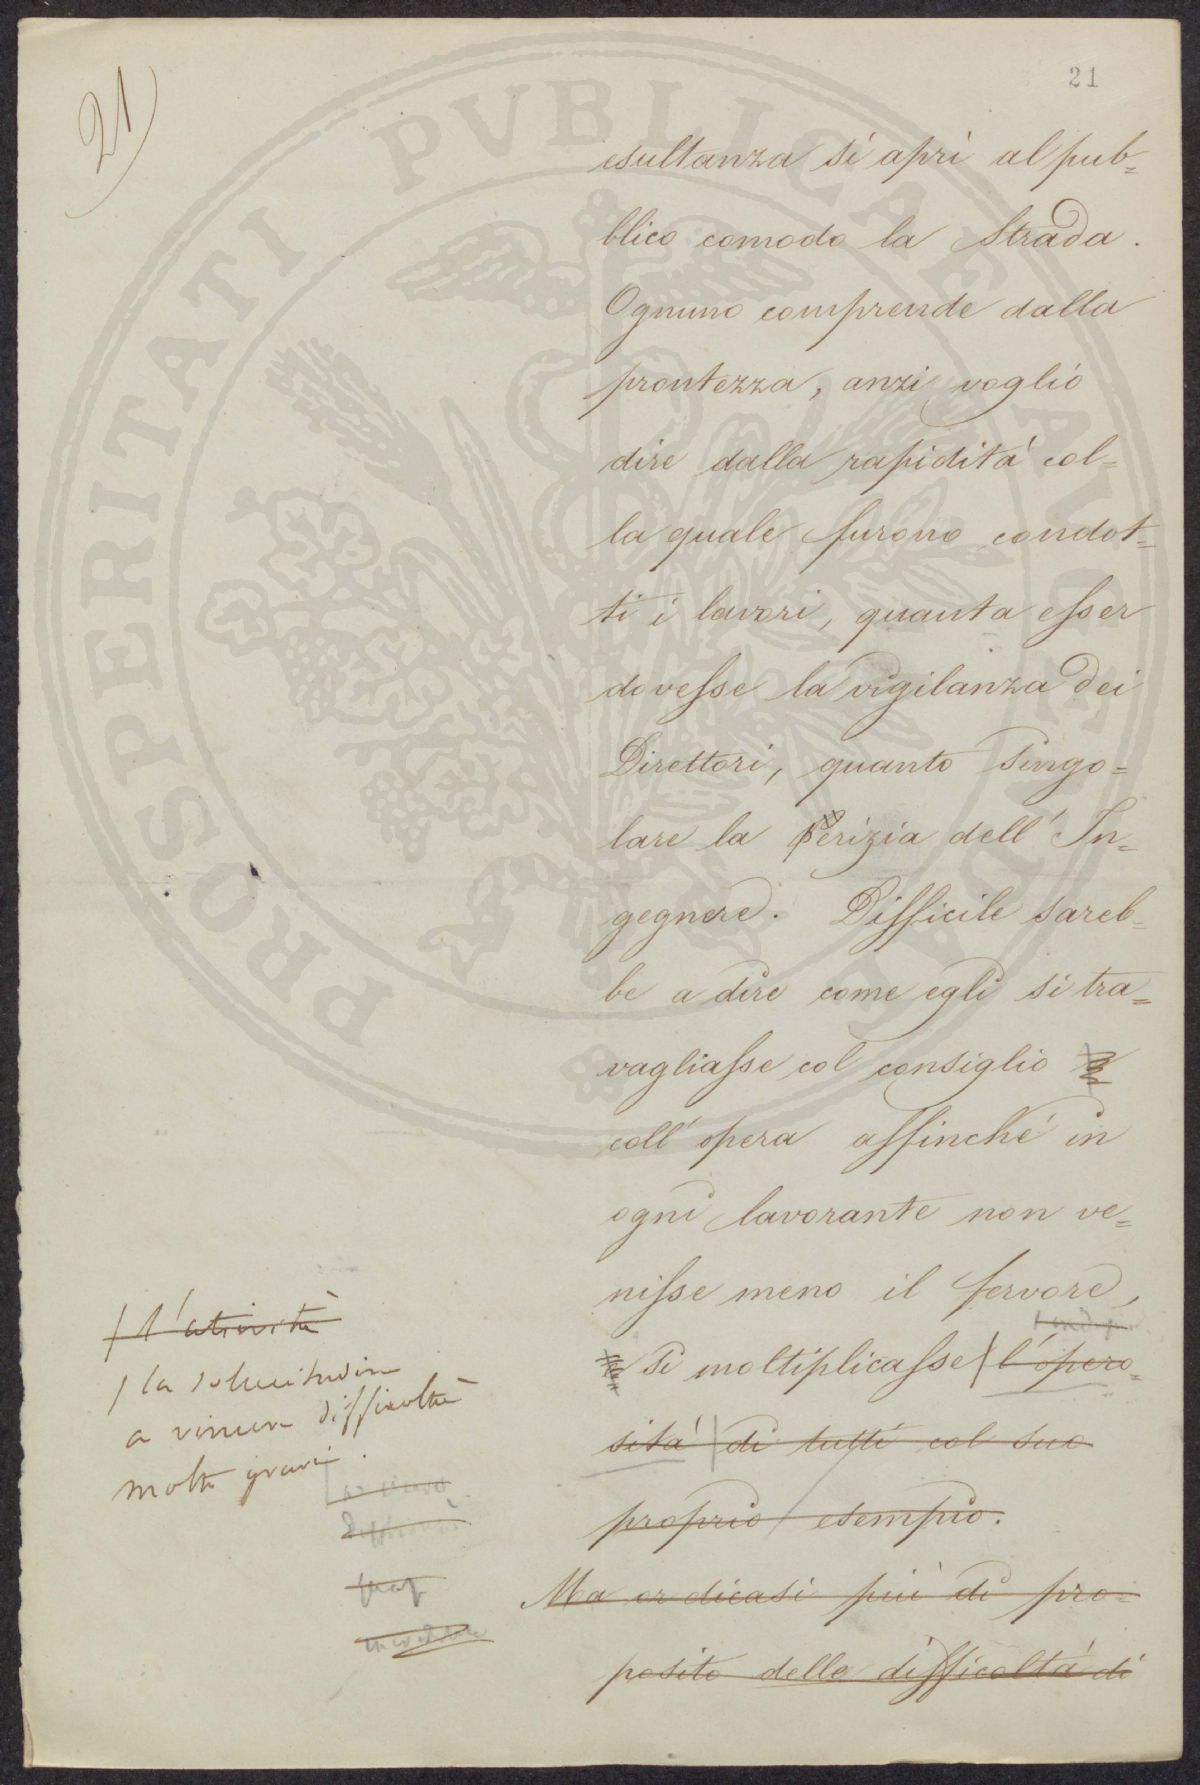 21)
21
esultanza si aprì al pub=
blico comodo la Strada.
Ognuno comprende dalla
prontezza, anzi voglio
dire dalla rapidità col=
la quale furono condot=
ti i lavori, quanta esser
dovesse la vigilanza dei
Direttori, quanto singo=
lare la perizia dell' In=
gegnere. Difficile sareb=
be a dire come egli si tra=
vagliasse col consiglio
coll' opera affinché in
ogni lavorante non ve=
nisse meno il fervore,
si moltiplicasse l'opero=
sità di tutti col suo
proprio esempio.
Ma or dicasi più di pro=
posito delle difficoltà di
l'attività
la solecitudine
a vincere difficoltà
molto gravi.
PROSPERITATI PVBLICAE AVGENDAE